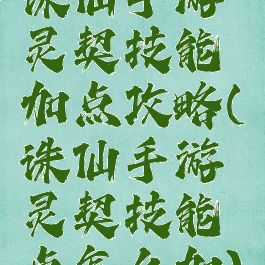 诛仙手游
灵契技能
加点攻略(
诛仙手游
灵契技能
点怎么加)